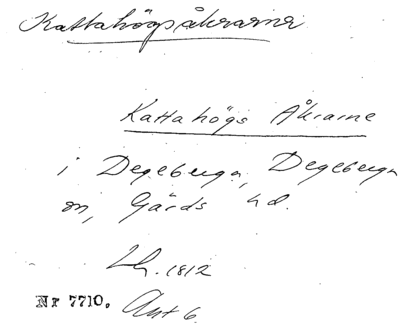 Kattahögsåkrarne
Kattahögs Åkrarne
i Degeberga, Degeberga
sn, Gärds hd.
Lh. 1812
Nr 7710. Akt 6.